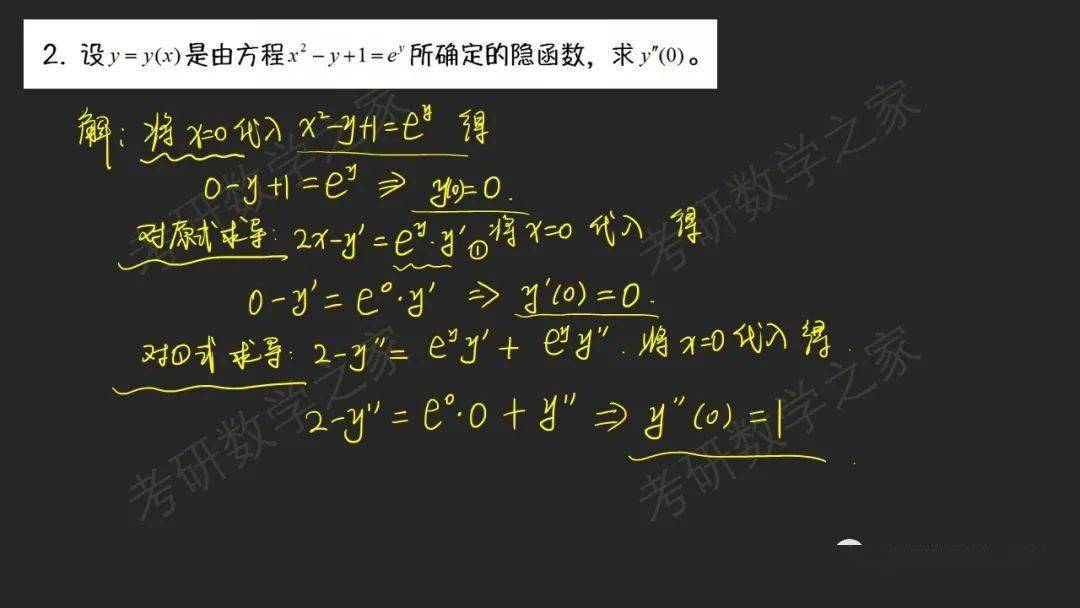 2. 设y=y(x)是由方程x²-y+1=eʸ所确定的隐函数，求y″(0)。
解：将x=0代入 x²-y+1=eʸ 得
0-y+1=eʸ ⇒ y(0)=0.
对原式求导：2x-y′=eʸ·y′① 将x=0 代入 得
0-y′=e⁰·y′ ⇒ y′(0)=0.
对①式求导：2-y″=eʸy′+eʸy″.将x=0代入得.
2-y″=e⁰·0+y″⇒y″(0)=1
考研数学之家
考研数学之家
考研数学之家
考研数学之家